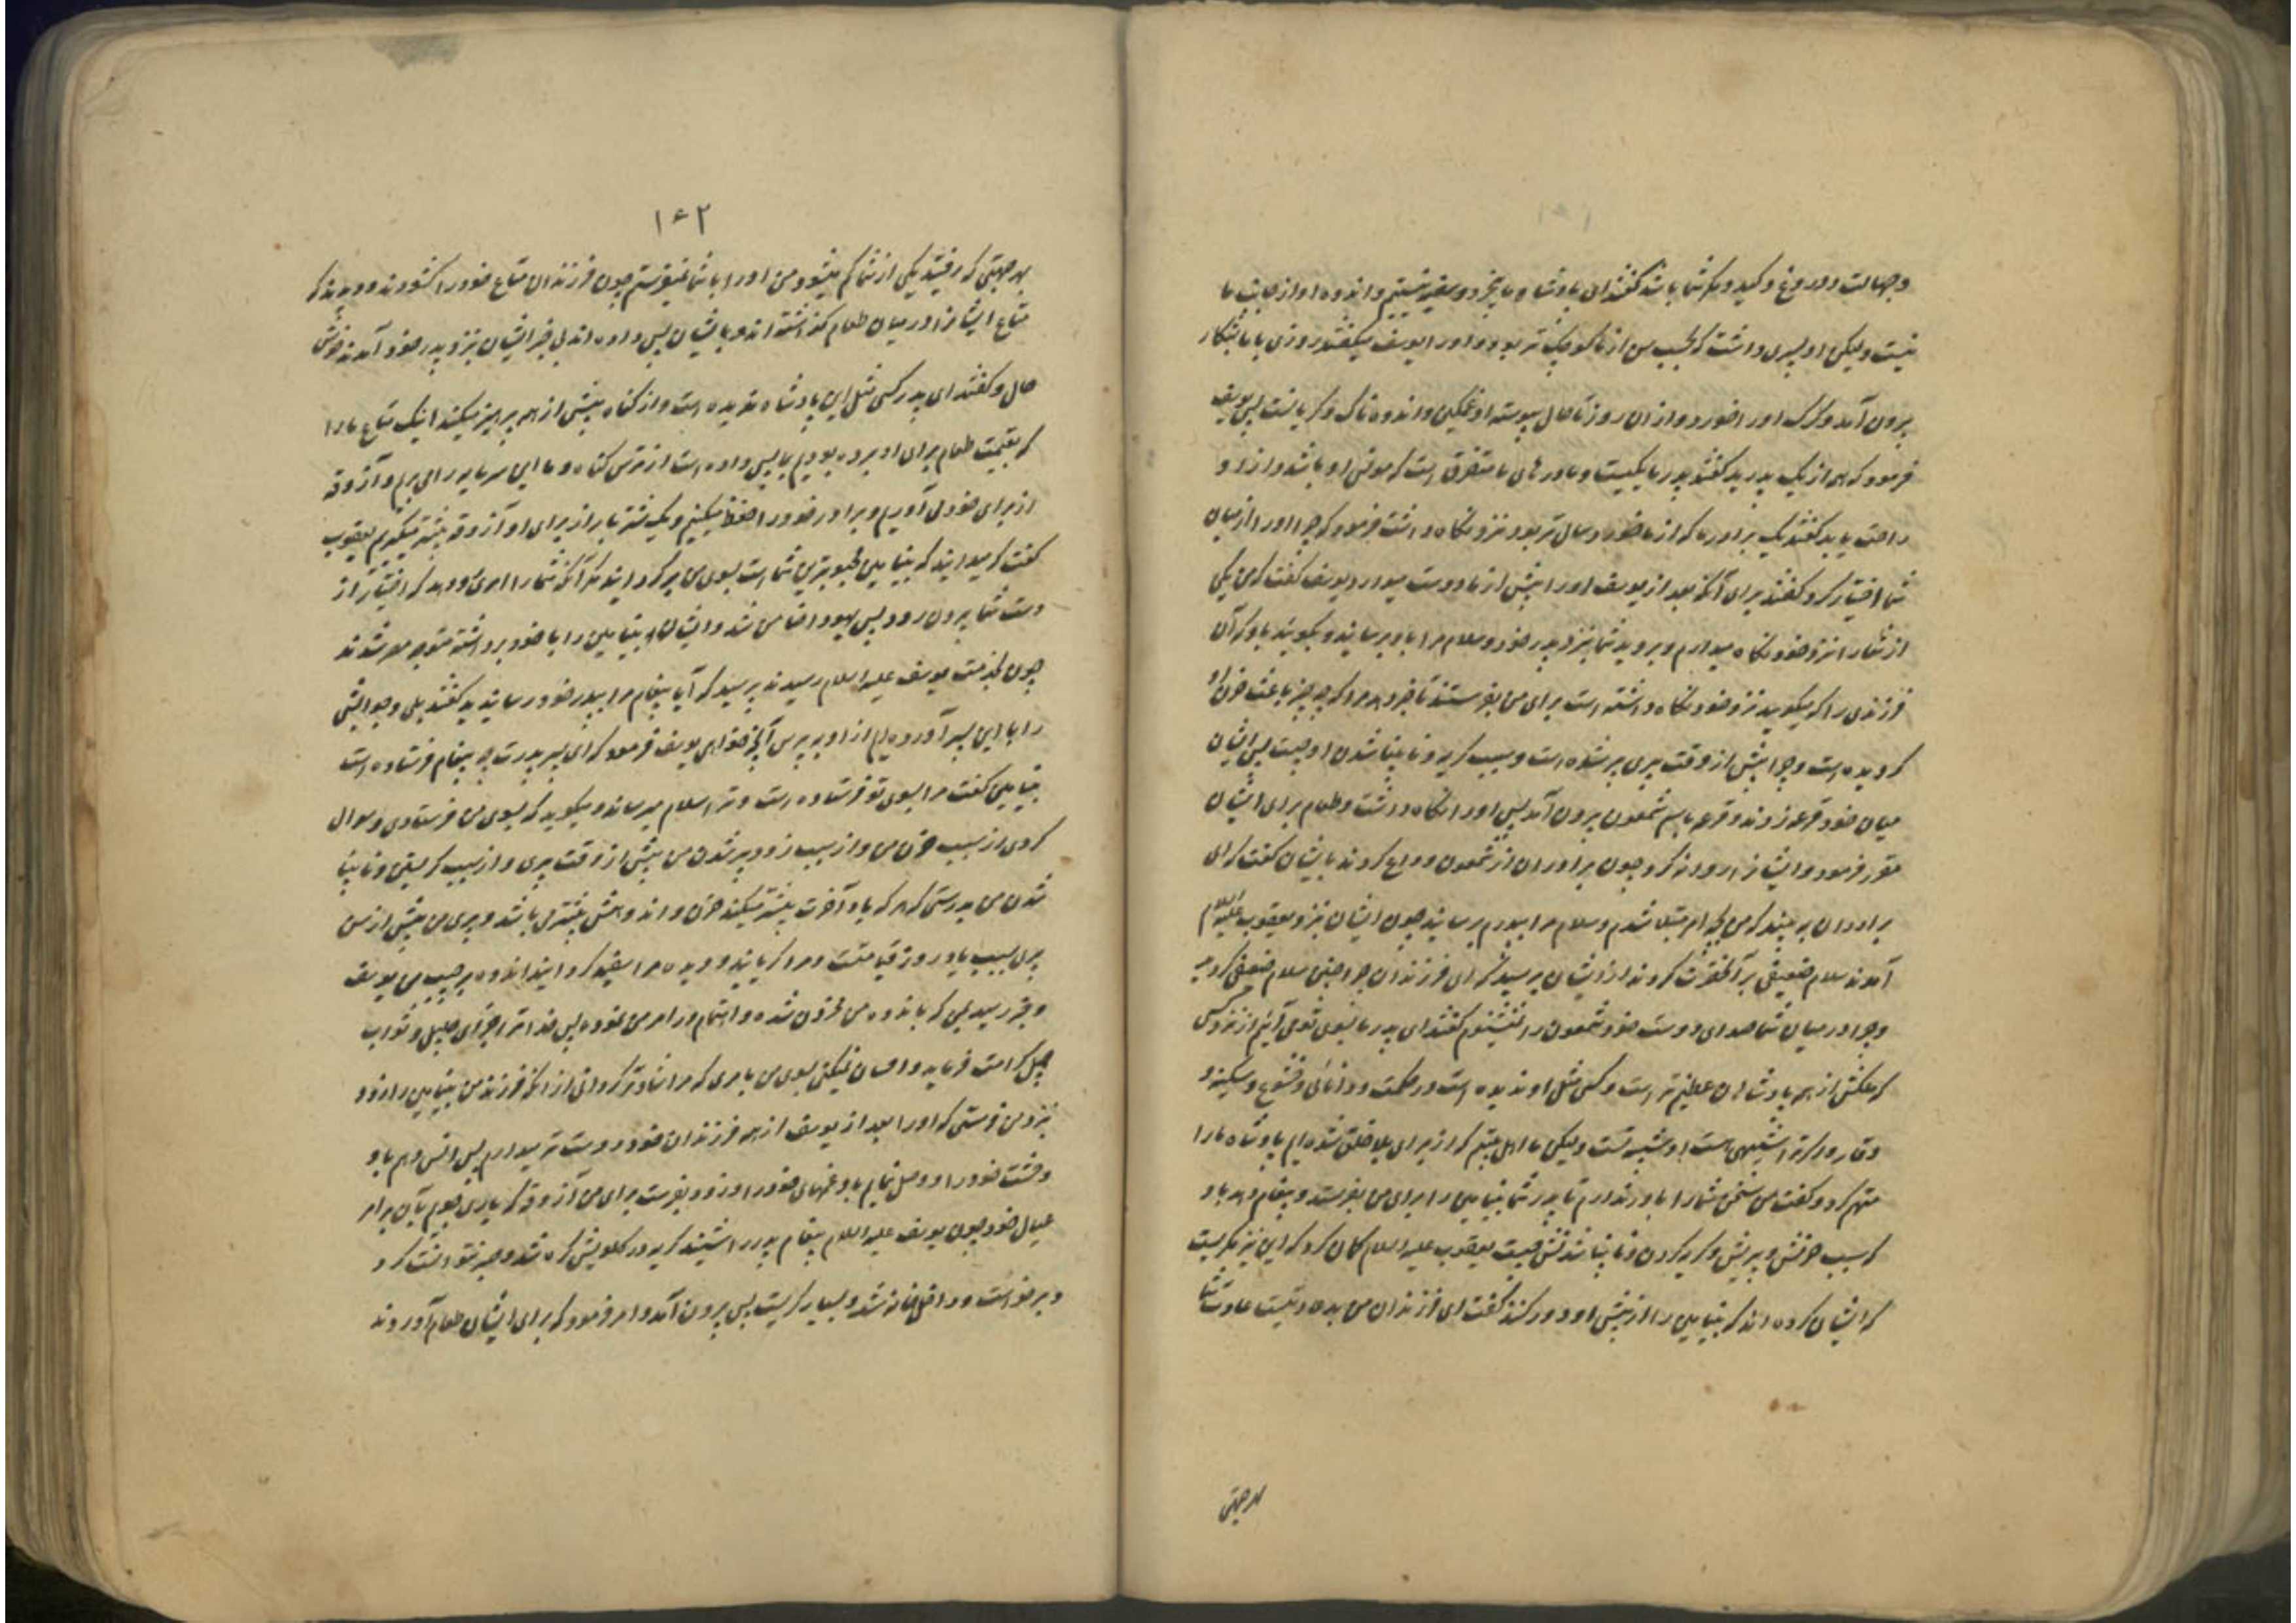 وجهالت و دروغ و کید و مکر شما باشد گفتند ای پادشاه ما بیخرد و سفیه نیستیم و اندوه او از جانب ما
نیست ولیکن او پسری داشت که بحسب سن از ما کوچک تر بود و او را یوسف میگفتند روزی با ما بشکار
برون آمد و گرک او را خورد و از ان روز تا حال پیوسته او غمگین و اندوه ناک و گریانست پس یوسف
فرمود که همه از یک پدرید گفتند پدر ما یکیست و مادرهای ما متفرق است که موتی او باشد و از او
راحت یابد گفتند یک برادر ما که از ما خورد سال تر بود نزد خود نگاه داشت فرمود که چرا او را از میان
شما اختیار کرد گفتند برای آنکه بعد از یوسف او را بیش از ما دوست میدارد یوسف گفت که من یکی
از شما را نزد خود نگاه میدارم و بروید شما بنزد پدر خود و سلام مرا باو برسانید و بگوئید باو که آن
فرزندی را که میگوئید نزد خود نگاه داشته است برای من بفرستد تا خبر دهد مرا که چه چیز باعث حزن او
گردیده است و چرا بیش از وقت پیری پیر شده است و سبب گریه و نابینا شدن او چیست پس ایشان
میان خود قرعه زدند و قرعه باسم شمعون برون آمد پس او را نگاه داشت و طعام برای ایشان
مقرر فرمود و ایشانرا روانه کرد چون برادران از شمعون وداع کردند بایشان گفت که ای
برادران به بینید که من بچه امر مبتلا شدم و سلام مرا بپدرم برسانید چون ایشان بنزد یعقوب علیه السلام
آمدند سلام ضعیفی بر آنحضرت کردند از ایشان پرسید که ای فرزندان چرا چنین سلام ضعیفی کردید
و چرا در میان شما صدای دوست خود شمعون را نمیشنوم گفتند ای پدر ما بسوی تو می آئیم از نزد کسی
که ملکش از همه پادشاهان عظیم تر است و کسی مثل او ندیده است در حکمت و دانائی و خشوع و سکینه و
وقار و اگر ترا شبیهی هست او شبیه تست ولیکن ما اهل بیتیم که از برای بلا خلق شده ایم پادشاه ما را
متهم کرد و گفت من سخن شما را باور ندارم تا پدر شما بنیامین را برای من بفرستد و پیغام دهد باو
که سبب حزنش و پیریش و گریه کردن و نابینا شدنش چیست یعقوب علیه السلام گمان کرد که این نیز مکریست
که ایشان کرده اند که بنیامین را از پیش او دور کنند گفت ای فرزندان من بد عادتیست عادت شما
بهر جهتی
۱۶۲
بهر جهتی که رفتید یکی از شما کم میشود من او را با شما نمیفرستم چون فرزندان متاع خود را گشودند و دیدند که
متاع ایشانرا در میان طعام گذاشته اند و بایشان پس داده اند بی خبر ایشان بنزد پدر خود آمدند خوش
حال و گفتند ای پدر کسی مثل این پادشاه ندیده است و از گناه بیش از همه پرهیز میکند اینک متاع ما را
که بقیمت طعام برای او برده بودیم بما پس داده است از ترس گناه و ما این سرمایه را می بریم و آزوقه
از برای خود می آوریم و برادر خود را حفظ میکنیم و یک شتر بار از برای او آزوقه بیشتر میگیریم یعقوب
گفت که میدانید که بنیامین محبوبترین شما است بسوی من برگردانید مگر آنکه شما را امری رو دهد که اختیار از
دست شما برون رود پس یهودا ضامن شد و ایشان بنیامین را با خود برداشته متوجه مصر شدند
چون بخدمت یوسف علیه السلام رسیدند پرسید که آیا پیغام مرا بپدر خود رسانیدید گفتند بلی و جوابش
را با این پسر آورده ایم از او بپرس آنچه خواهی یوسف فرمود که ای پسر پدرت چه پیغام فرستاده است
بنیامین گفت مرا بسوی تو فرستاده است و ترا سلام میرساند و میگوید که بسوی من فرستادی و سوال
کردی از سبب حزن من و از سبب زود پیر شدن من بیش از وقت پیری و از سبب گریستن و نابینا
شدن من بدرستی که هر که یاد آخرت بیشتر میکند حزن و اندوهش بیشتر می باشد و پیری من بیش از سن
پیری بسبب یاد روز قیامتست و مرا گریانید و دیده مرا سفید گردانید اندوه بر حبیب من یوسف
و خبر رسید بمن که باندوه من محزون شده و اهتمام در امر من نموده پس خدا ترا جزای جلیل و ثواب
جمیل کرامت فرماید و احسان نمیکنی بسوی من بامری که مرا شادتر گردانی از آنکه فرزند من بنیامین را زود
بنزد من فرستی که او را بعد از یوسف از همه فرزندان خود دوست تر میدارم پس انس دهم باو
وحشت خود را و وصل نمایم باو تنهائی خود را و زود بفرست برای من آزوقه که یاری جویم بآن بر امر
عیال خود چون یوسف علیه السلام پیغام پدر را شنید گریه در گلویش گره شد و صبر نتوانست کرد
و برخواست و داخل خانه شد و بسیار گریست پس برون آمد و امر فرمود که برای ایشان طعام آوردند